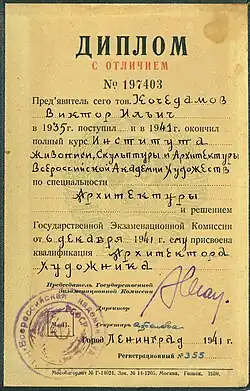 ДИПЛОМ
С ОТЛИЧИЕМ
№ 197403
Пред'явитель сего тов. Кочедамов
Виктор Ильич
в 1935 г. поступил и в 1941 г. окончил
полный курс Института
Живописи, Скульптуры и Архитектуры
Всероссийской Академии Художеств
по специальности
Архитектуры
и решением
Государственной Экзаменационной Комиссии
от 6 декабря 1941 г. ему присвоена
квалификация Архитектора
Художника
Председатель Государственной
Экзаменационной Комиссии
Директор
Секретарь
Город Ленинград 1941 г.
Регистрационный № 355